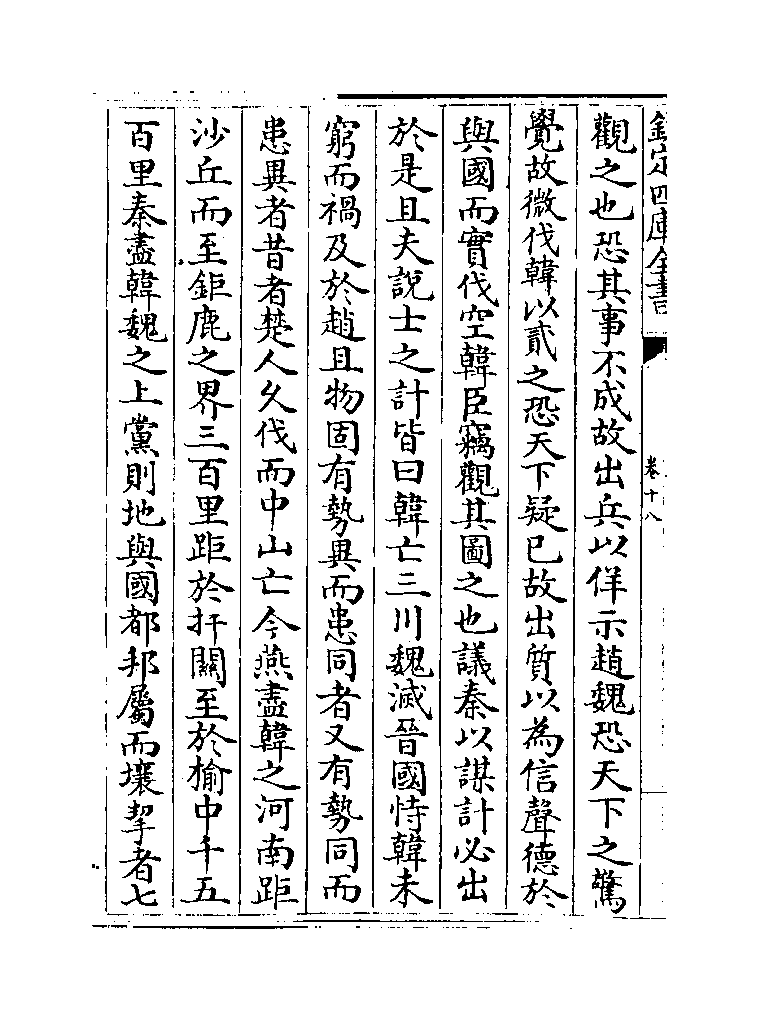 欽定四庫全書
卷十八
觀之也恐其事不成故出兵以佯示趙魏恐天下之驚
覺故微伐韓以貳之恐天下疑已故出質以為信聲德於
與國而實伐空韓臣竊觀其圖之也議秦以謀計必出
於是且夫說士之計皆曰韓亡三川魏滅晉國恃韓未
窮而禍及於趙且物固有勢異而患同者又有勢同而
患異者昔者楚人久伐而中山亡今燕盡韓之河南距
沙丘而至鉅鹿之界三百里距於扞關至於榆中千五
百里秦盡韓魏之上黨則地與國都邦屬而壤挈者七